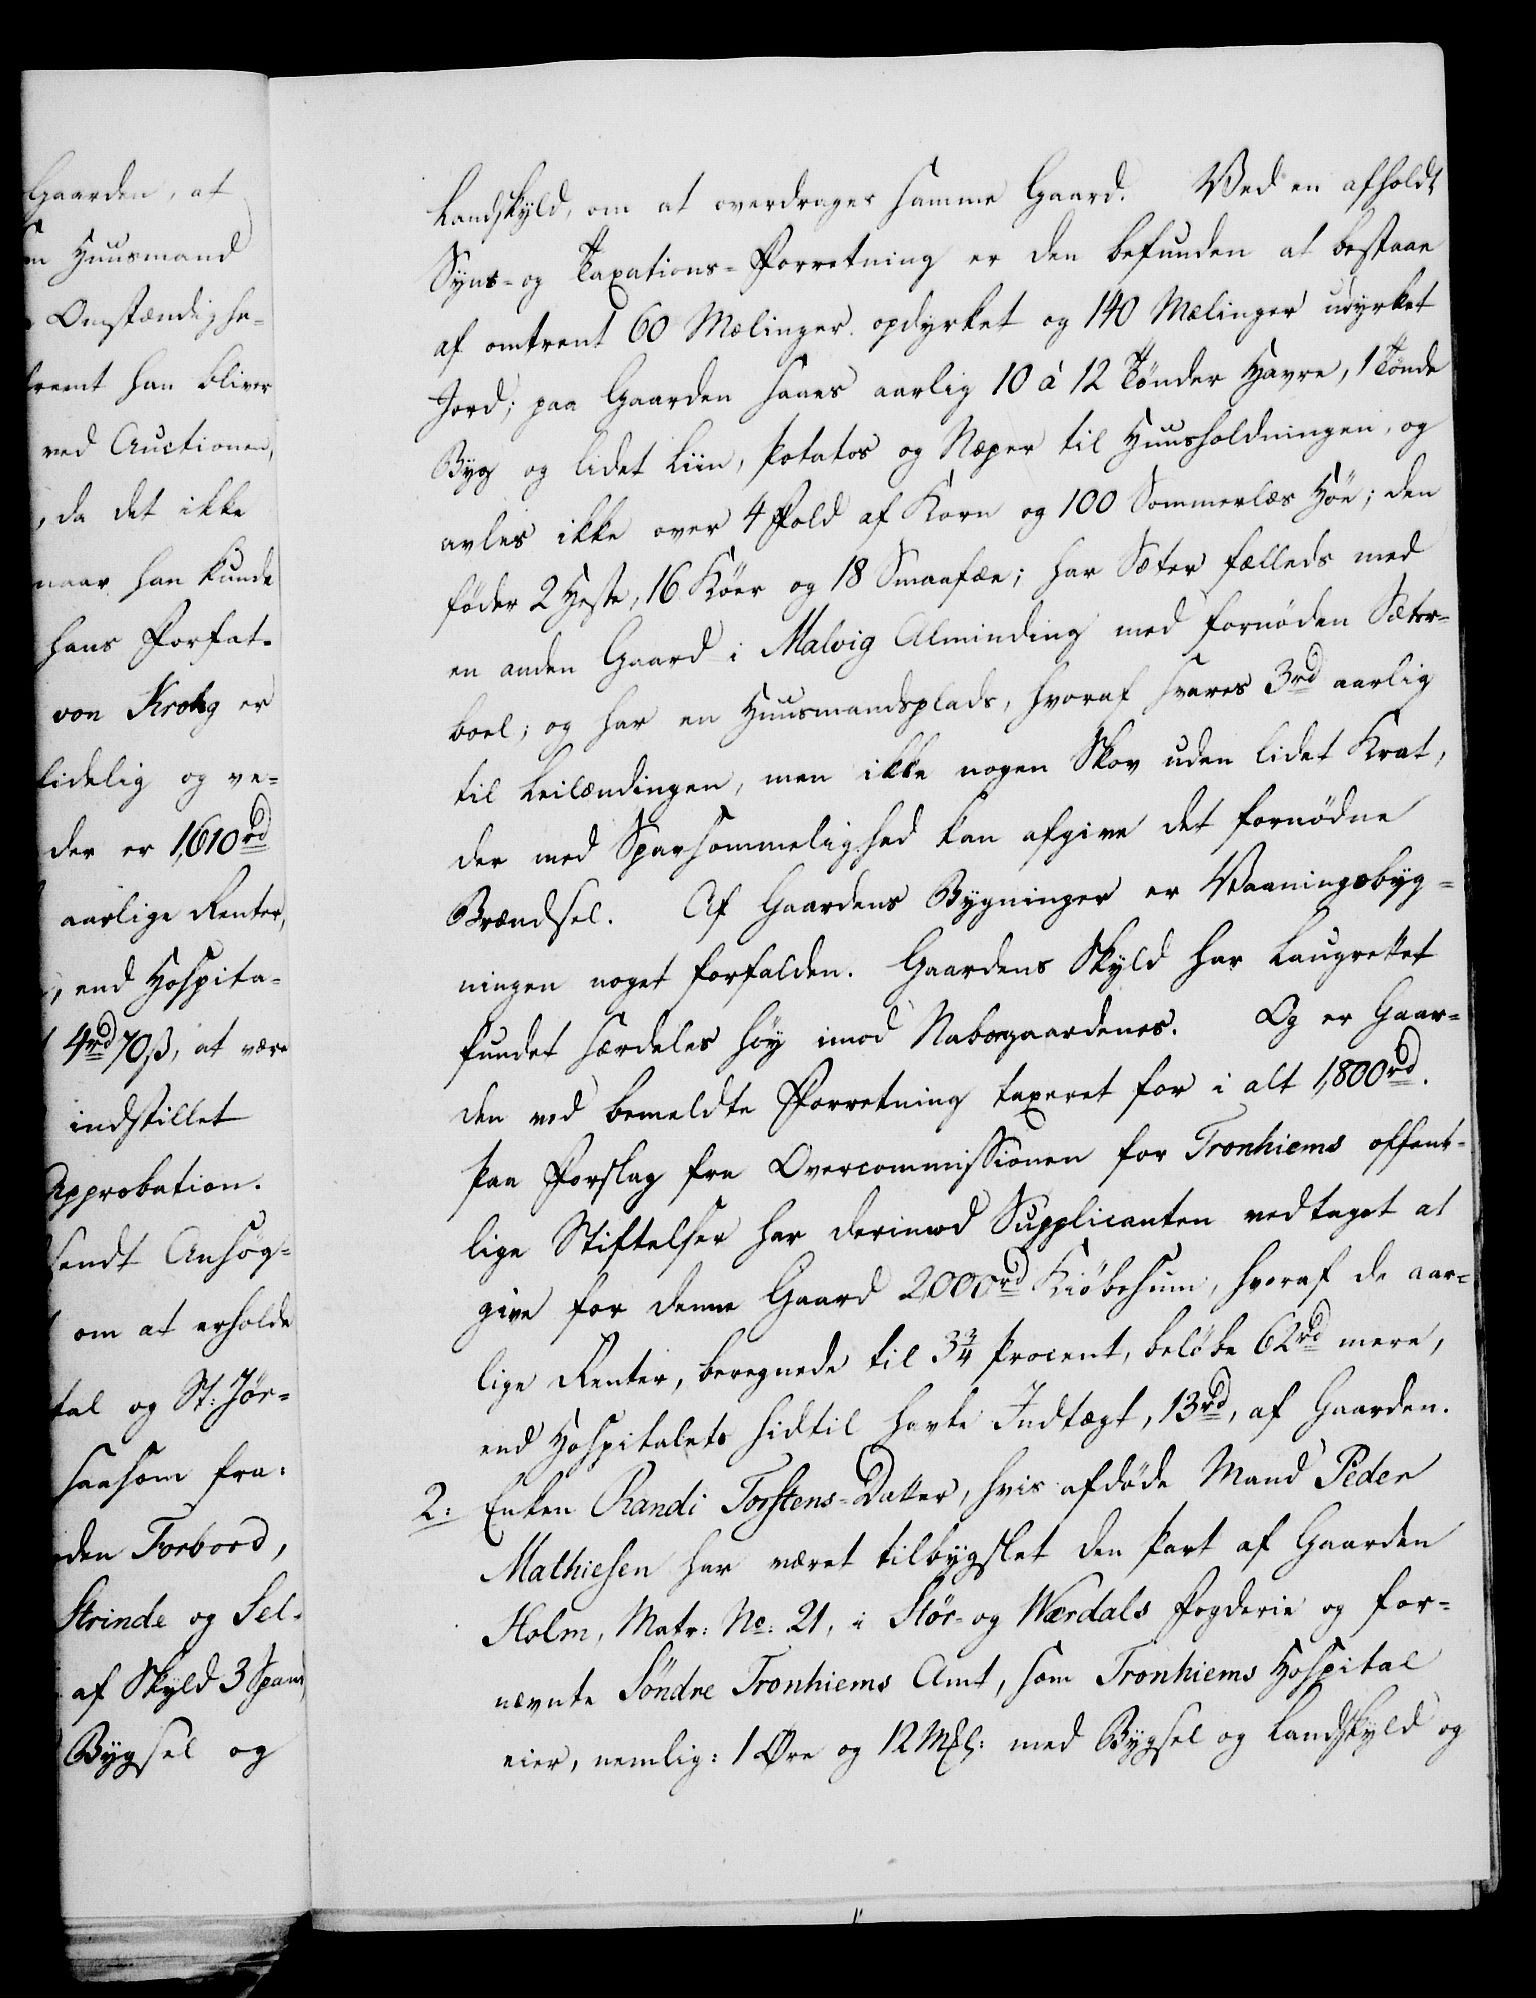 Gaarden, at
en Huusmand
Omstændighe-
fremt han bliver
ved Auctionen,
, da det ikke
naar han kunde
hans Forfat-
von Krohg er
lidelig og ve-
der er 1,610 rd
aarlige Renter,
, end Hospita-
4 rd 70 ß, at være
indstillet
Approbation.
sendt Ansøg-
om at erholde
tal og St: Jör-
saasom fra:
den Torboed,
Strinde og Sel-
af Skyld 3 Spand
Bygsel og
Landskyld, om at overdrages samme Gaard. Ved en afholdt
Syns- og Taxations-Forretning er den befunden at bestaae
af omtrent 60 Mælinger opdyrket og 140 Mælinger udyrket
Jord; paa Gaarden saaes aarlig 10 à 12 Tönder Havre, 1 Tönde
Byg og lidet Liin, Potatos og Næper til Huusholdningen, og
avles ikke over 4 Fold af Korn og 100 Sommerlæs Höe; den
föder 2 Heste, 16 Köer og 18 Smaafæe; har Sæter fælleds med
en anden Gaard i Malvig Alminding med fornöden Sæter-
boel; og har en Huusmandsplads, hvoraf svares 3 rd aarlig
til Leilændingen, men ikke nogen Skov uden lidet Krat,
der med Sparsommelighed kan afgive det fornödne
Brændsel. Af Gaardens Bygninger er Vaaningsbyg-
ningen noget forfalden. Gaardens Skyld har Laugrettet
fundet særdeles höy imod Naboegaardenes. Og er Gaar-
den ved bemeldte Forretning taxeret for i alt 1,800 rd.
Paa Forslag fra Overcommissionen for Tronhiems offent-
lige Stiftelser har derimod Supplicanten vedtaget at
give for denne Gaard 2,000 rd Kiöbesum, hvoraf de aar-
lige Renter, beregnede til 3 3/4 Procent, belöbe 62 rd mere,
end Hospitalets hidtil havte Indtægt, 13 rd, af Gaarden.
2: Enken Randi Torstens-Datter, hvis afdöde Mand Peder
Mathiesen har været tilbygslet den Part af Gaarden
Holm, Matr: No: 21, i Stör- og Værdals Fogderie og for-
nævnte Söndre Tronhiems Amt, som Tronhiems Hospital
eier, nemlig: 1 Øre og 12 Mkl: med Bygsel og Landskyld og